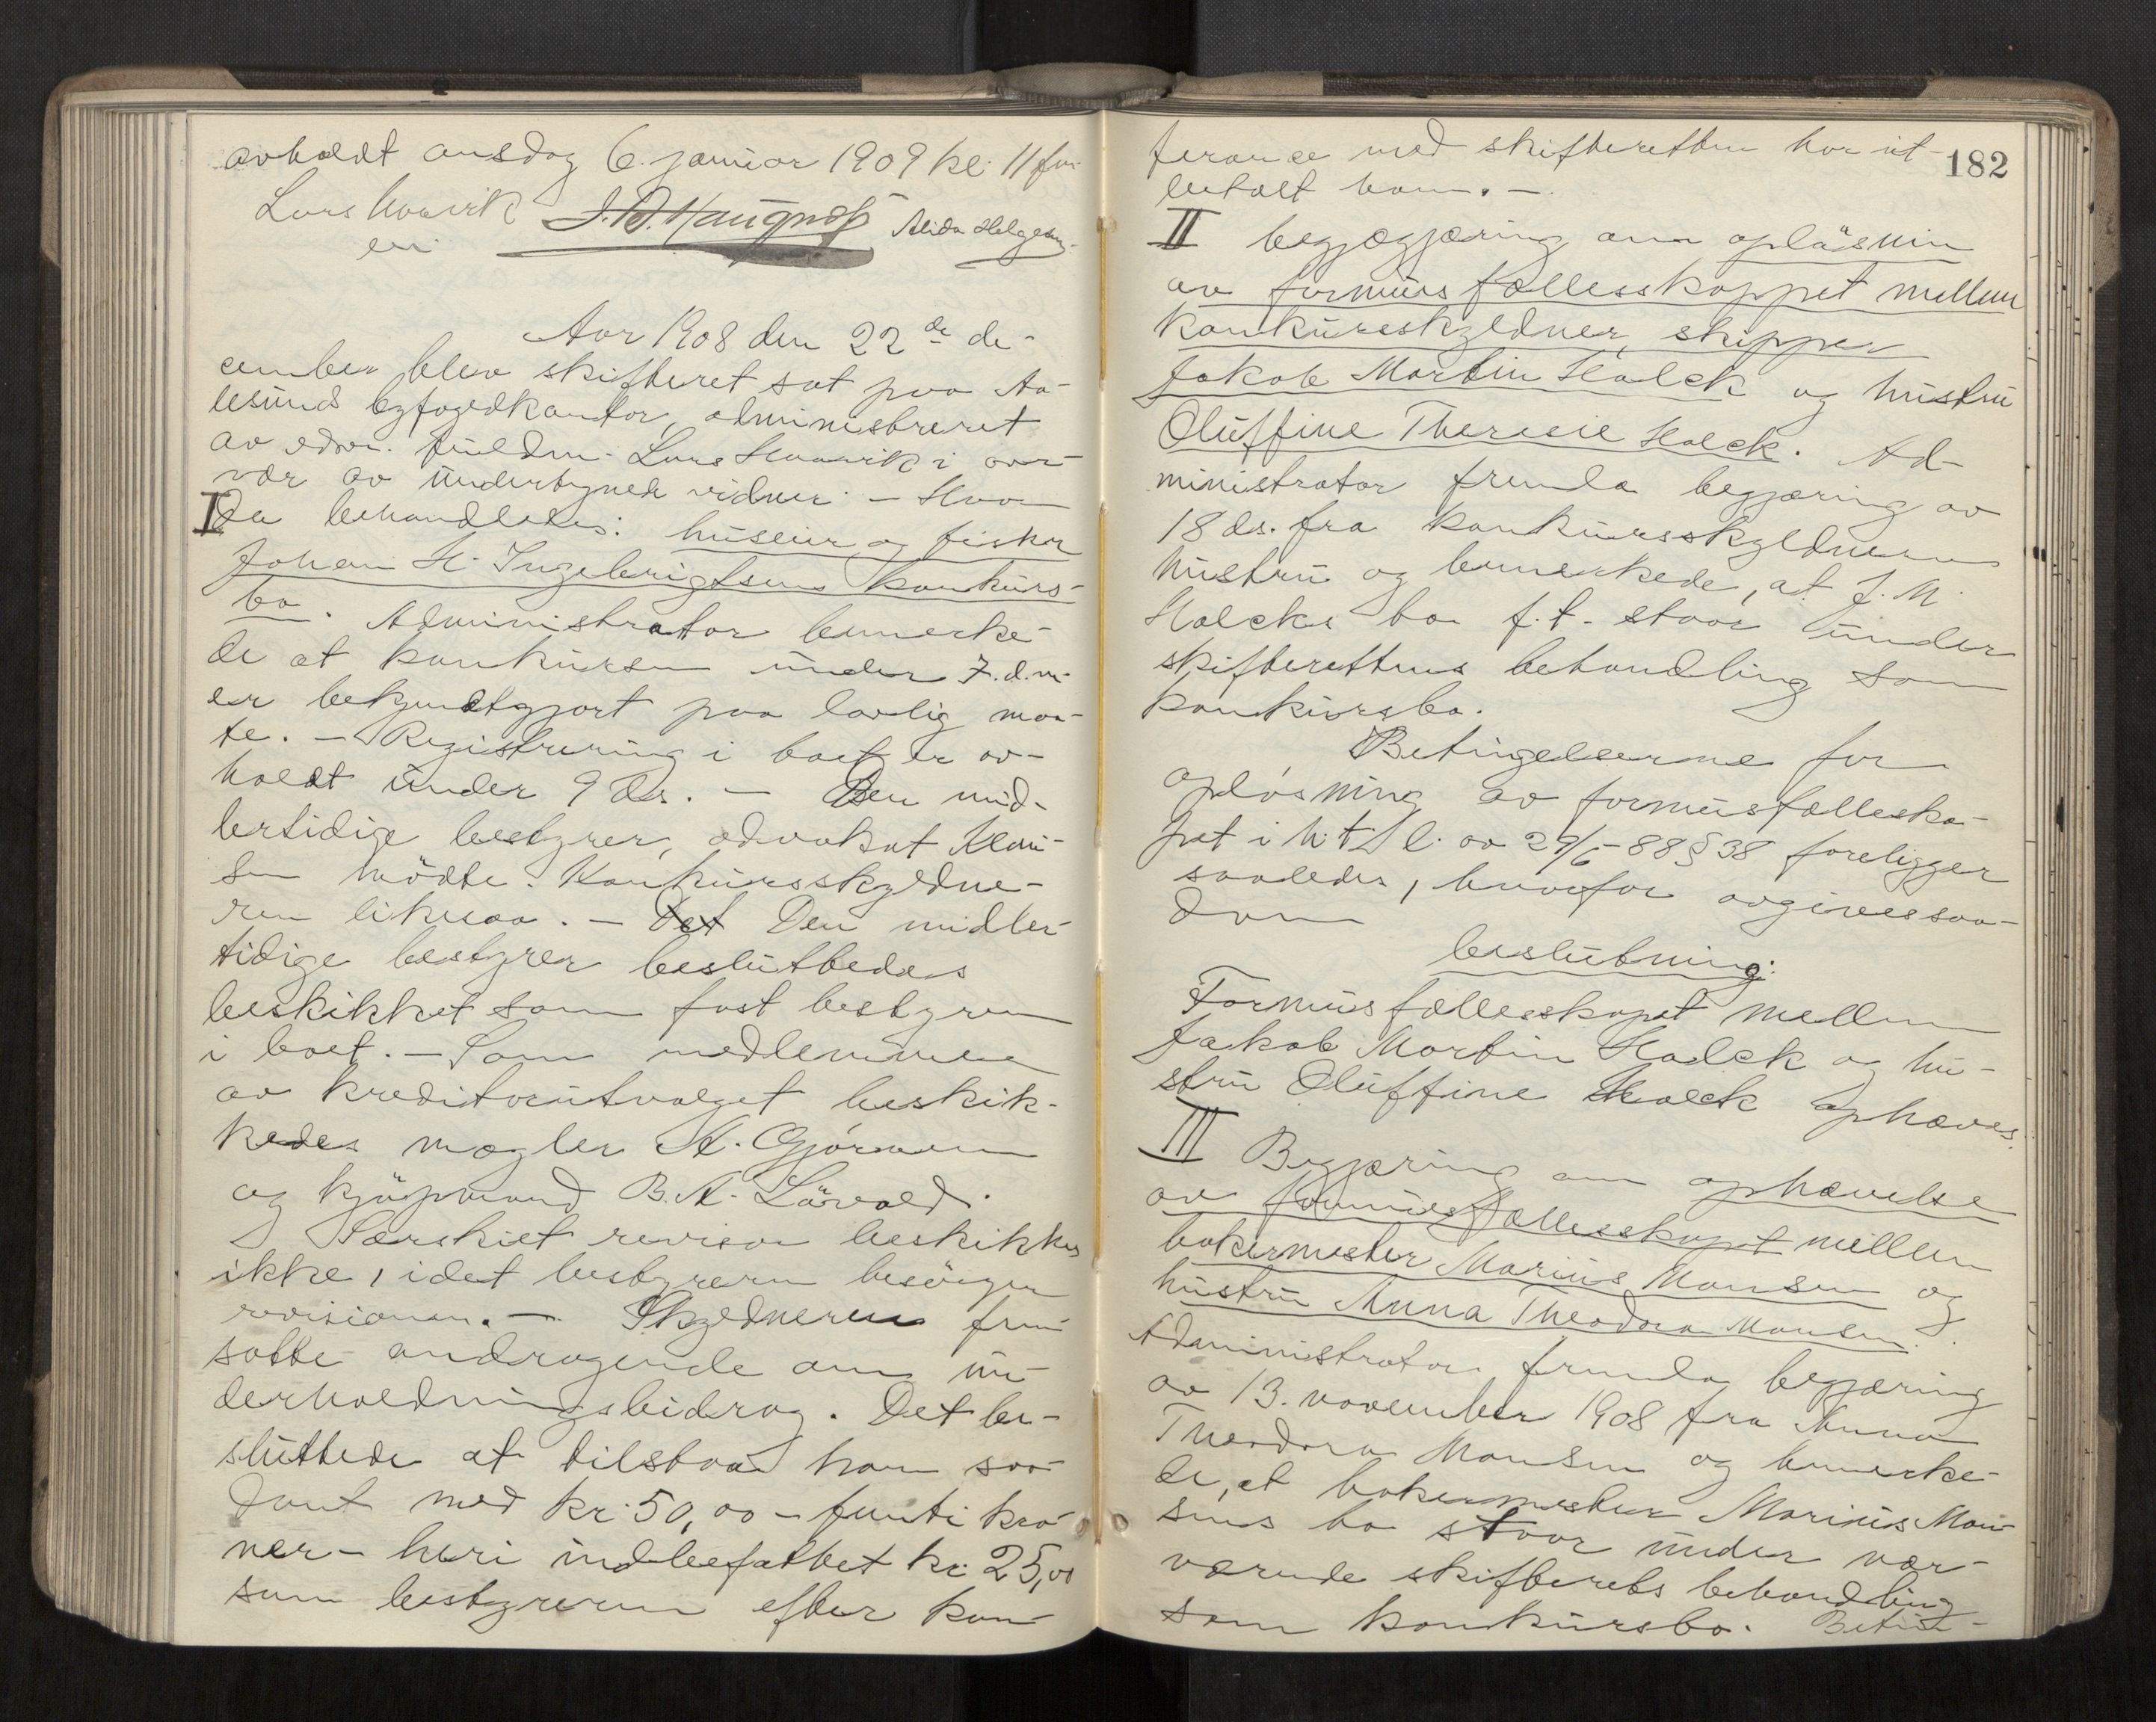 avholdt onsdag 6. januar 1909 kl. 11 fm.
Lars
Alida Helgesen
Aar 1908 den 22de de-
cember blev skifteret sat paa Aa-
lesunds byfogedkontor, administreret
av edsv. fuldm. Lars i over-
vær av undertegnede vidner. – Hvor-
I
da behandledes: huseier og fisker
Johan H. Ingebrigtsens konkurs-
bo. Administrator bemerke-
de at konkursen under 7. d. m.
er bekjendtgjort paa lovlig maa-
te. – Registrering i boet er av-
holdt under 9 ds. – Den mid-
lertidige bestyrer, advokat
mödte. Konkursskyldne-
ren likesaa. – Det Den midler-
tidige bestyrer besluttedes
beskikket som fast bestyrer
i boet. – Som medlemmer
av kreditorutvalget beskik-
kedes mægler A. Gjörtsen
og kjöpmand B. A. Lövold.
Særskilt revisor beskikkes
ikke, idet bestyreren besörger
revisionen. – Skyldneren frem
satte andragende om un-
derholdningsbidrag. Det be-
sluttedes at tilstaa ham saa-
dant med kr. 50,00 – femti kro-
ner – heri indbefattet kr. 25,00
som bestyreren efter kon-
182
feranse med skifteretten har ut-
betalt ham. –
II begjægjæring om oplösnin
av formuesfællesskappet mellem
konkursskyldner, skipper
Jakob Martin Holck og hustru
Oluffine Theresie Holck. Ad-
ministrator fremla begjæring av
18 ds. fra konkursskyldnerens
hustru og bemerkede, at J. M.
Holcks bo f.t. staar under
skifterettens behandling som
konkursbo.
Betingelserne for
oplösning av formuesfælleska-
pet i h. t. l. av 29/6-88 § 38 foreligger
saaledes, hvorfor avgives saa-
dan
beslutning:
Formuesfællesskapet mellem
Jakob Martin Holck og hu-
stru Oluffine Holck ophæves.
III Begjæring om ophævelse
av formuesfællesskapet mellem
bakermester Marius Monsen og
hustru Anna Theodora Monsen.
Administrator fremla begjæring
av 13. november 1908 fra Anna
Theodora Monsen og bemerke-
de, at bakermester Marius Mon-
sens bo staar under nær-
værende skifterets behandling
som konkursbo. Beting-